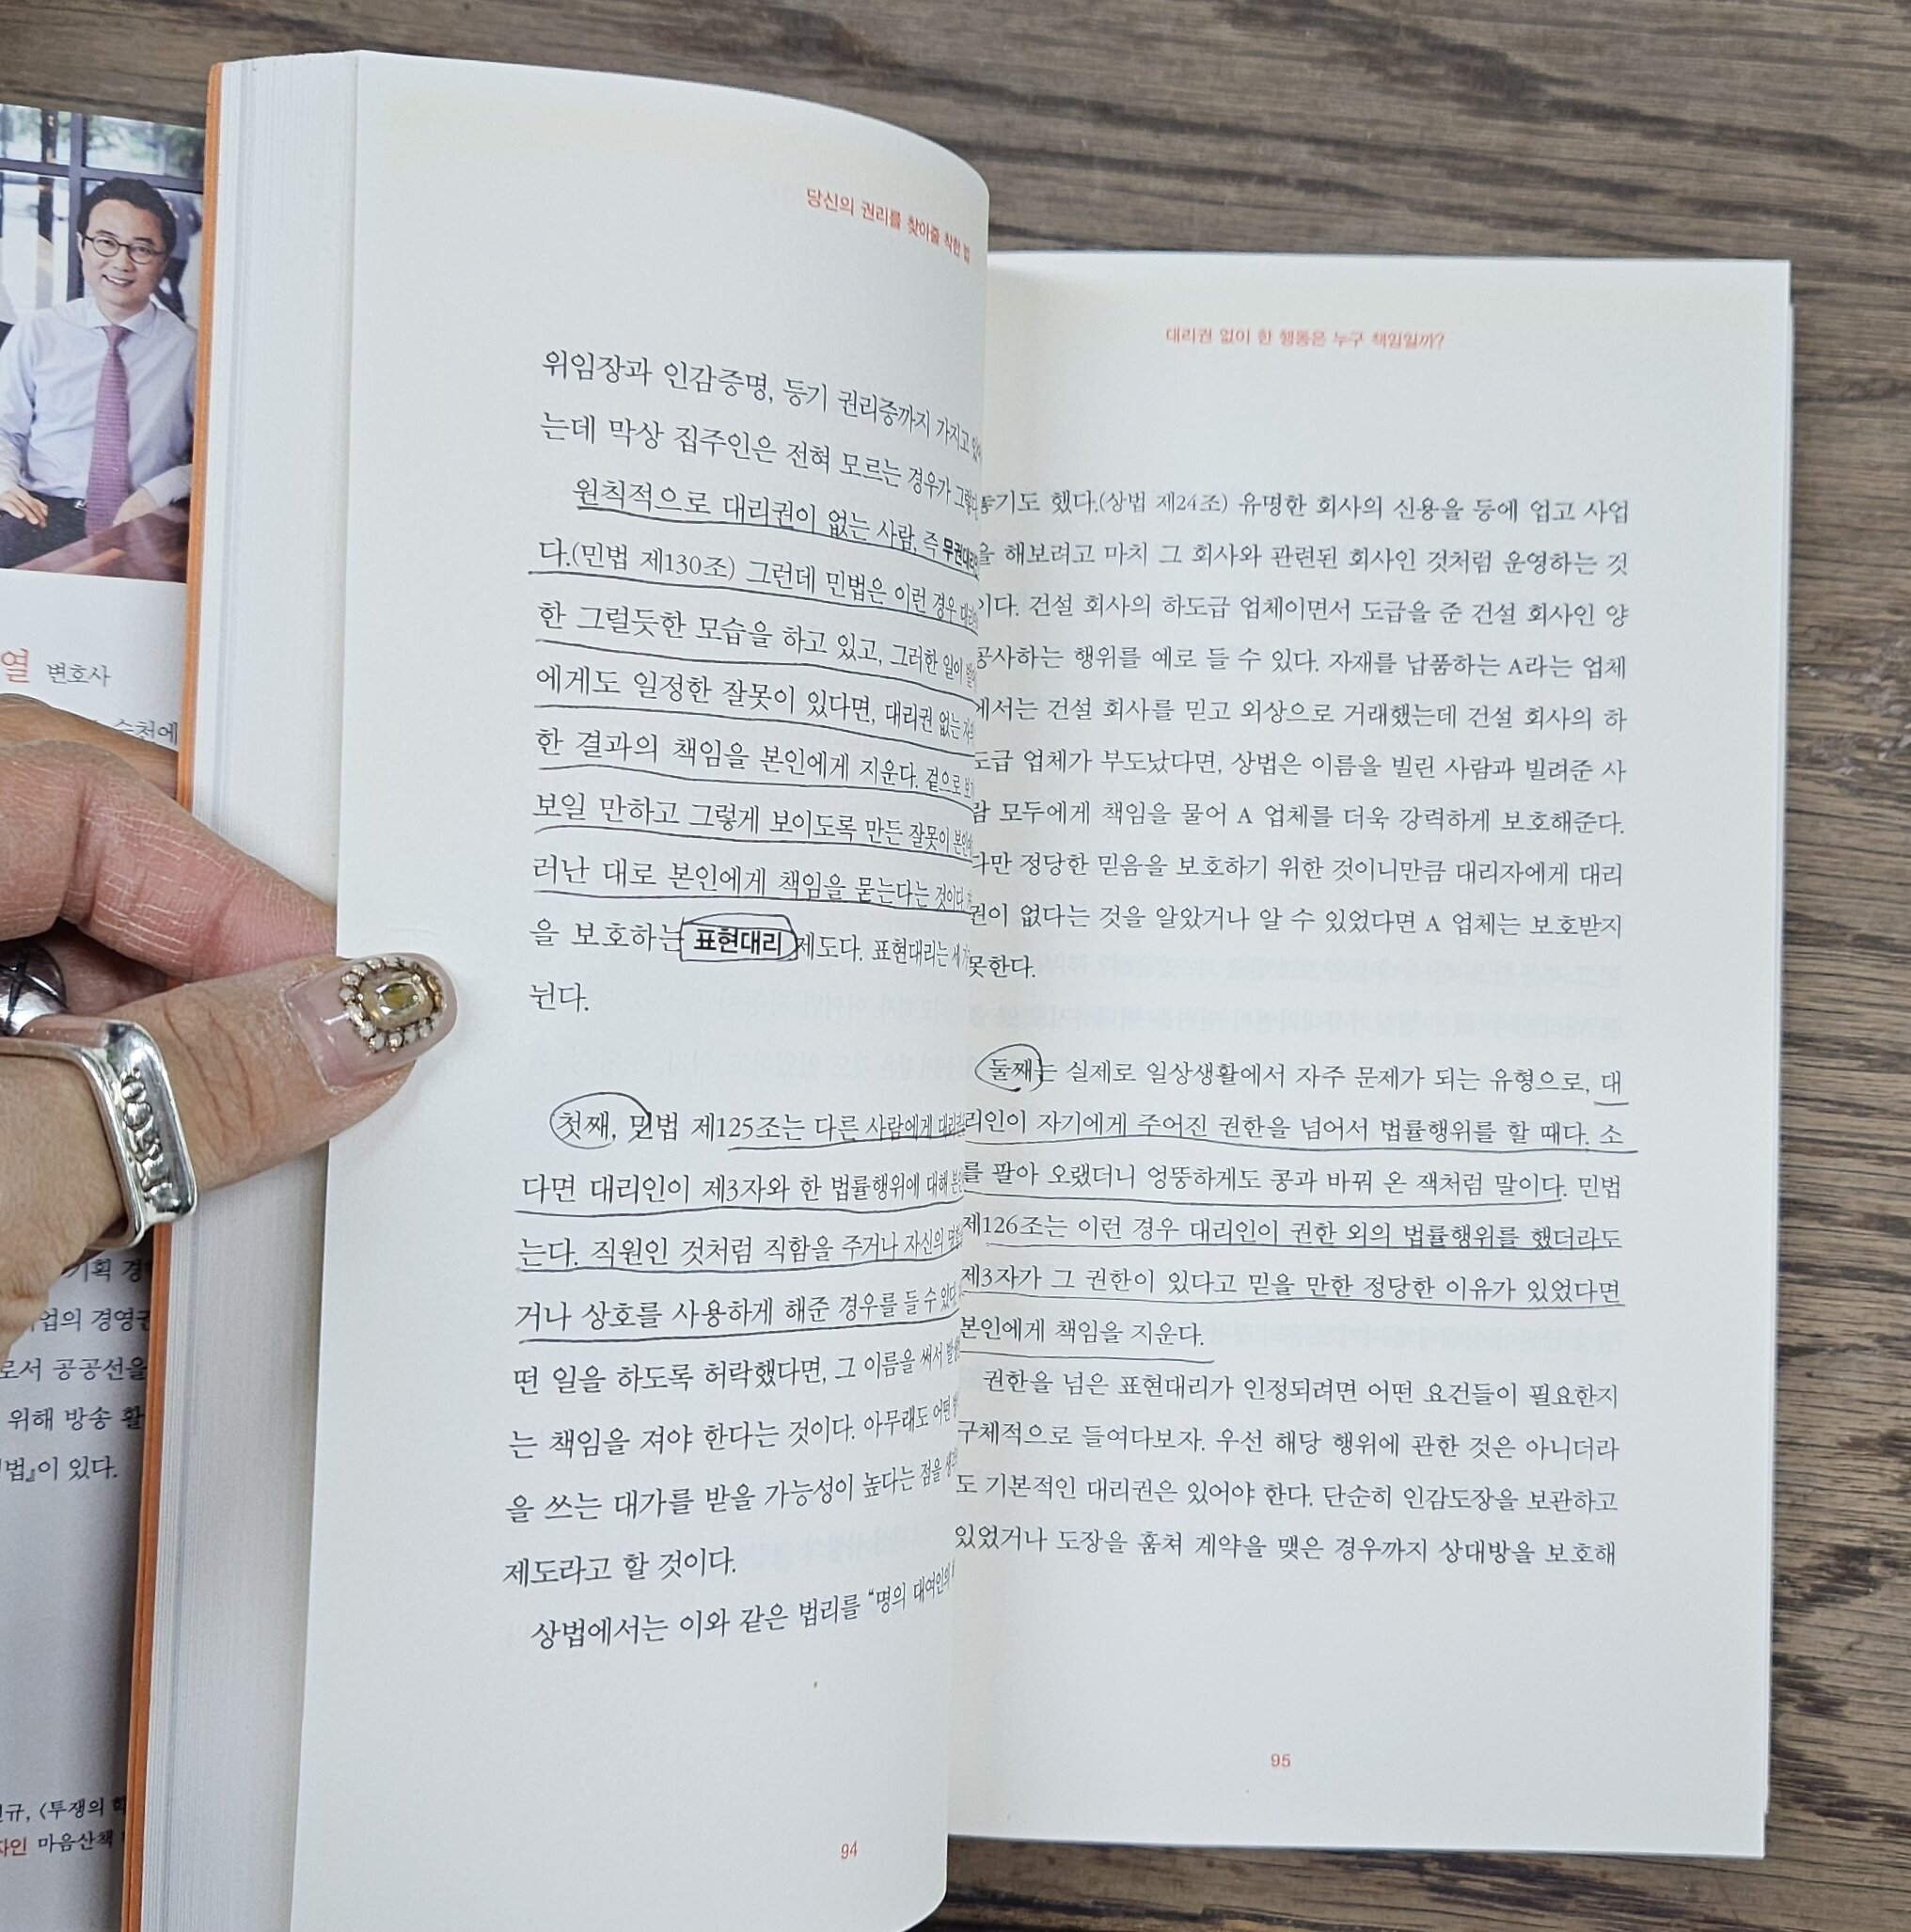 당신의 권리를 찾아줄 착한 법
위임장과 인감증명, 등기 권리증까지 가지고
는데 막상 집주인은 전혀 모르는 경우가
원칙적으로 대리권이 없는 사람, 즉 무권대리
다.(민법 제130조) 그런데 민법은 이런 경우
한 그럴듯한 모습을 하고 있고, 그러한 일이
에게도 일정한 잘못이 있다면, 대리권 없는
한 결과의 책임을 본인에게 지운다. 겉으로
보일 만하고 그렇게 보이도록 만든 잘못이
러난 대로 본인에게 책임을 묻는다는 것이다.
을 보호하는 표현대리 제도다. 표현대리는
뉜다.
첫째, 민법 제125조는 다른 사람에게
다면 대리인이 제3자와 한 법률행위에 대해
는다. 직원인 것처럼 직함을 주거나 자신의
거나 상호를 사용하게 해준 경우를 들 수 있다.
떤 일을 하도록 허락했다면, 그 이름을 써서
는 책임을 져야 한다는 것이다. 아무래도 어떤
을 쓰는 대가를 받을 가능성이 높다는 점을
제도라고 할 것이다.
상법에서는 이와 같은 법리를 “명의 대여인의
94
대리권 없이 한 행동은 누구 책임일까?
했다.(상법 제24조) 유명한 회사의 신용을 등에 업고 사업
을 해보려고 마치 그 회사와 관련된 회사인 것처럼 운영하는 것
이다. 건설 회사의 하도급 업체이면서 도급을 준 건설 회사인 양
공사하는 행위를 예로 들 수 있다. 자재를 납품하는 A라는 업체
에서는 건설 회사를 믿고 외상으로 거래했는데 건설 회사의 하
도급 업체가 부도났다면, 상법은 이름을 빌린 사람과 빌려준 사
람 모두에게 책임을 물어 A 업체를 더욱 강력하게 보호해준다.
다만 정당한 믿음을 보호하기 위한 것이니만큼 대리자에게 대리
권이 없다는 것을 알았거나 알 수 있었다면 A 업체는 보호받지
못한다.
둘째는 실제로 일상생활에서 자주 문제가 되는 유형으로, 대
리인이 자기에게 주어진 권한을 넘어서 법률행위를 할 때다. 소
를 팔아 오랬더니 엉뚱하게도 콩과 바꿔 온 잭처럼 말이다. 민법
제126조는 이런 경우 대리인이 권한 외의 법률행위를 했더라도
제3자가 그 권한이 있다고 믿을 만한 정당한 이유가 있었다면
본인에게 책임을 지운다.
권한을 넘은 표현대리가 인정되려면 어떤 요건들이 필요한지
구체적으로 들여다보자. 우선 해당 행위에 관한 것은 아니더라
도 기본적인 대리권은 있어야 한다. 단순히 인감도장을 보관하고
있었거나 도장을 훔쳐 계약을 맺은 경우까지 상대방을 보호해
95
열 변호사
순천에
기획
업의 경영권
로서 공공선을
위해 방송
법』이 있다.
〈투쟁의
마음산책